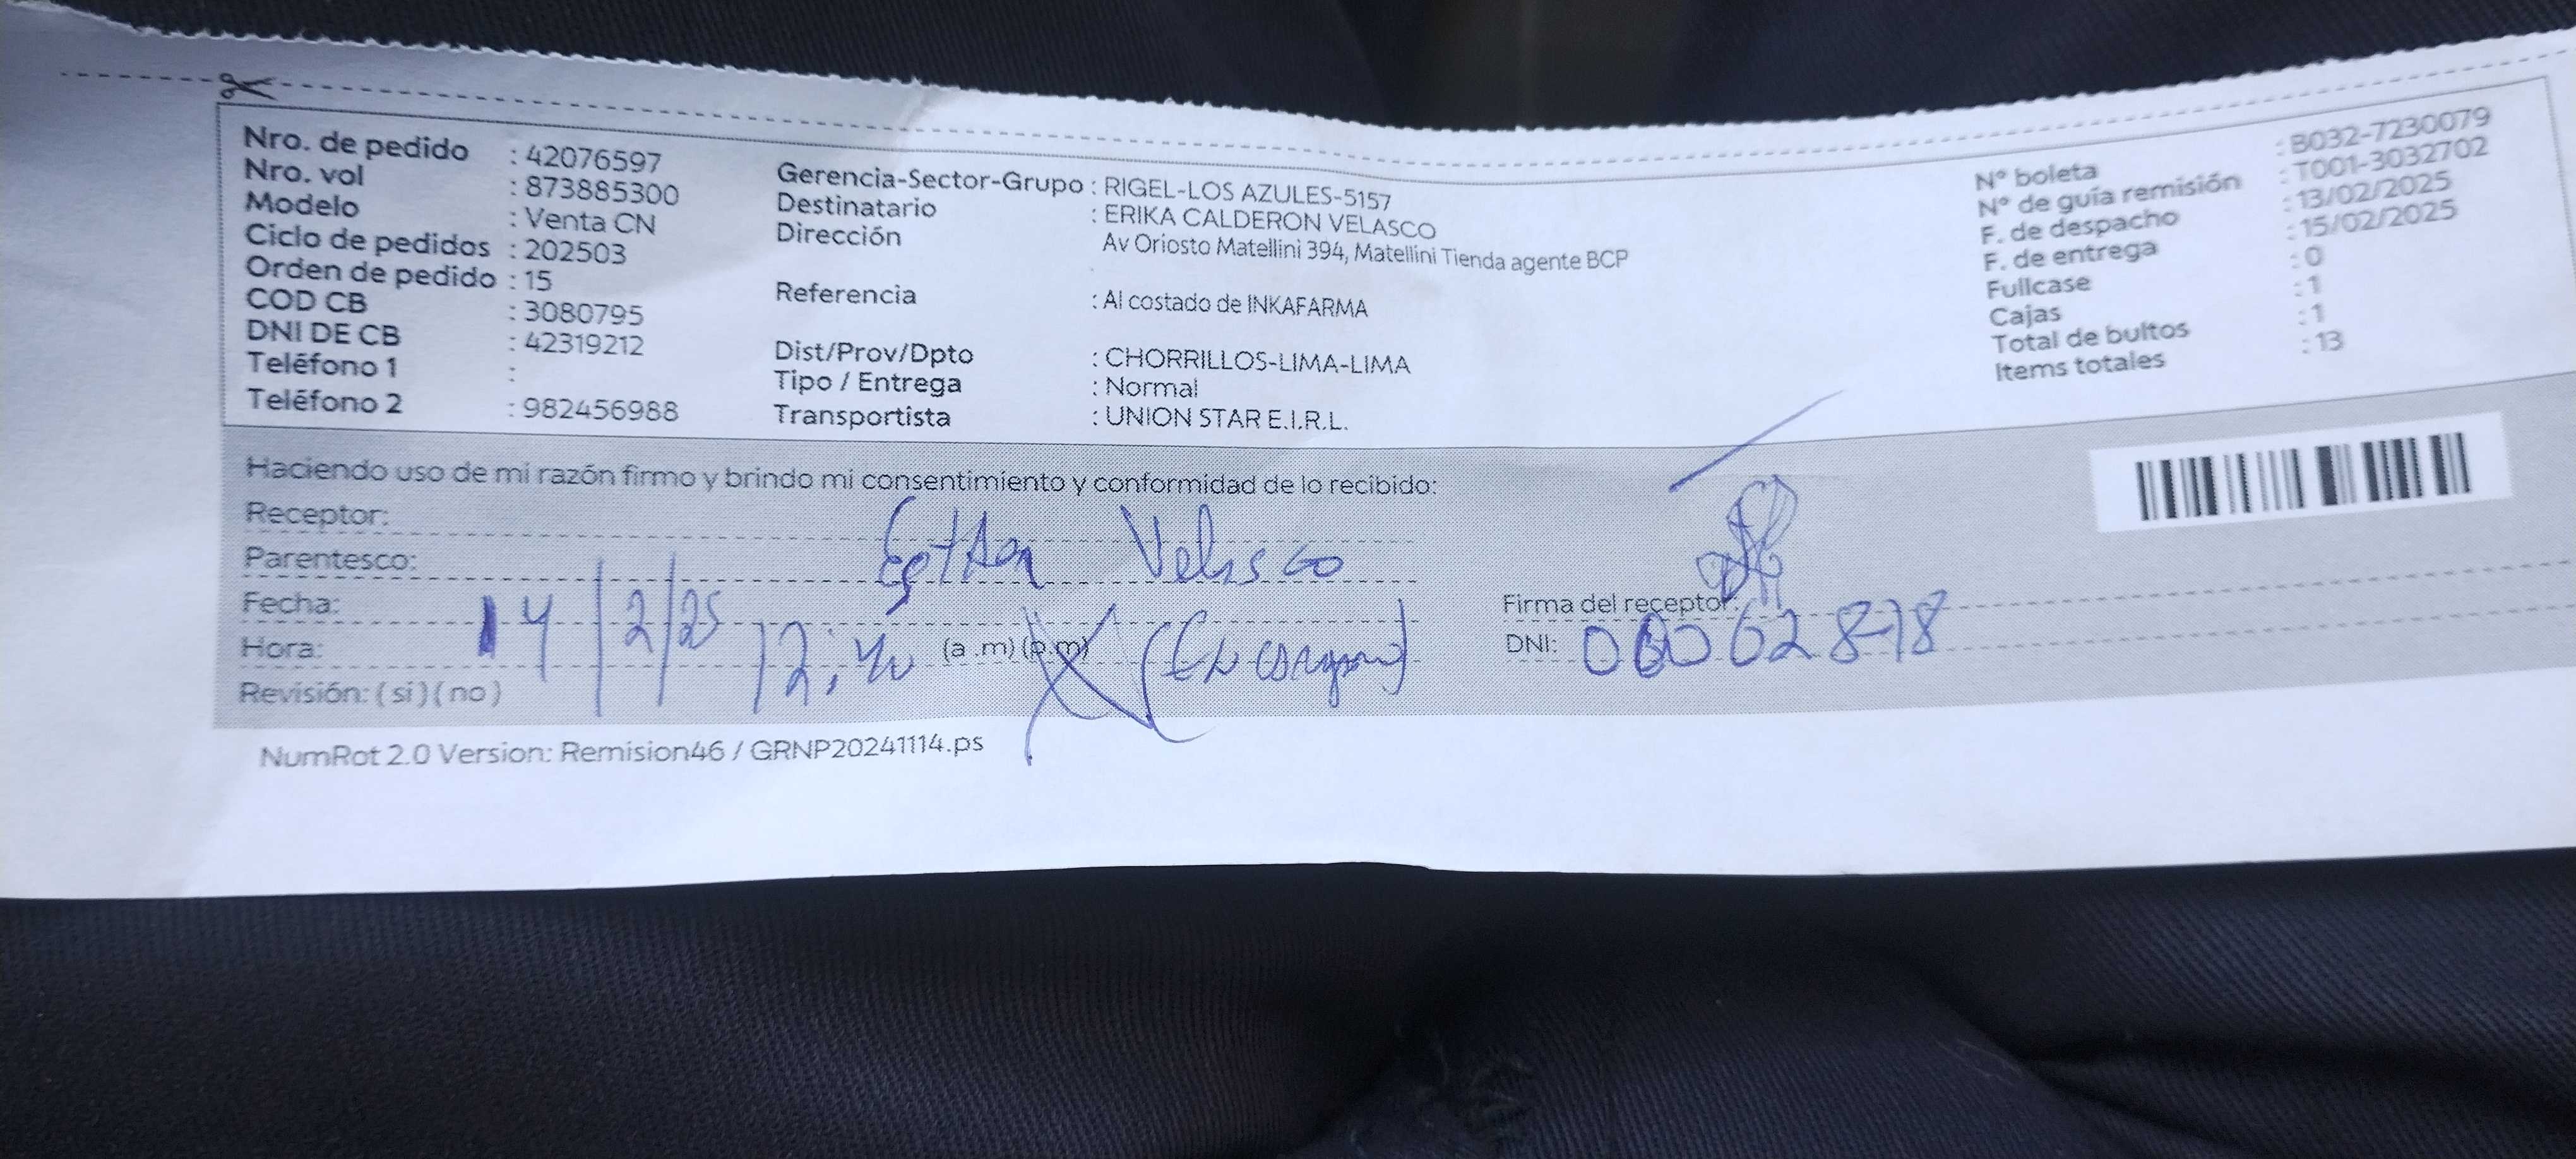 Nro. de pedido : 42076597
Nro. vol : 873885300
Modelo : Venta CN
Ciclo de pedidos : 202503
Orden de pedido : 15
COD CB : 3080795
DNI DE CB : 42319212
Teléfono 1 :
Teléfono 2 : 982456988
Gerencia-Sector-Grupo : RIGEL-LOS AZULES-5157
Destinatario : ERIKA CALDERON VELASCO
Dirección Av Oriosto Matellini 394, Matellini Tienda agente BCP
Referencia : Al costado de INKAFARMA
Dist/Prov/Dpto : CHORRILLOS-LIMA-LIMA
Tipo / Entrega : Normal
Transportista : UNION STAR E.I.R.L.
N° boleta : B032-7230079
N° de guía remisión : T001-3032702
F. de despacho : 13/02/2025
F. de entrega : 15/02/2025
Fullcase : 0
Cajas : 1
Total de bultos : 1
Items totales : 13
Haciendo uso de mi razón firmo y brindo mi consentimiento y conformidad de lo recibido:
Receptor:
Parentesco: Velasco
Fecha: 14/2/25
Hora: 12:40 (a .m) (p.m)
Revisión: ( si ) ( no )
Firma del receptor:
DNI:
NumRot 2.0 Version: Remision46 / GRNP20241114.ps